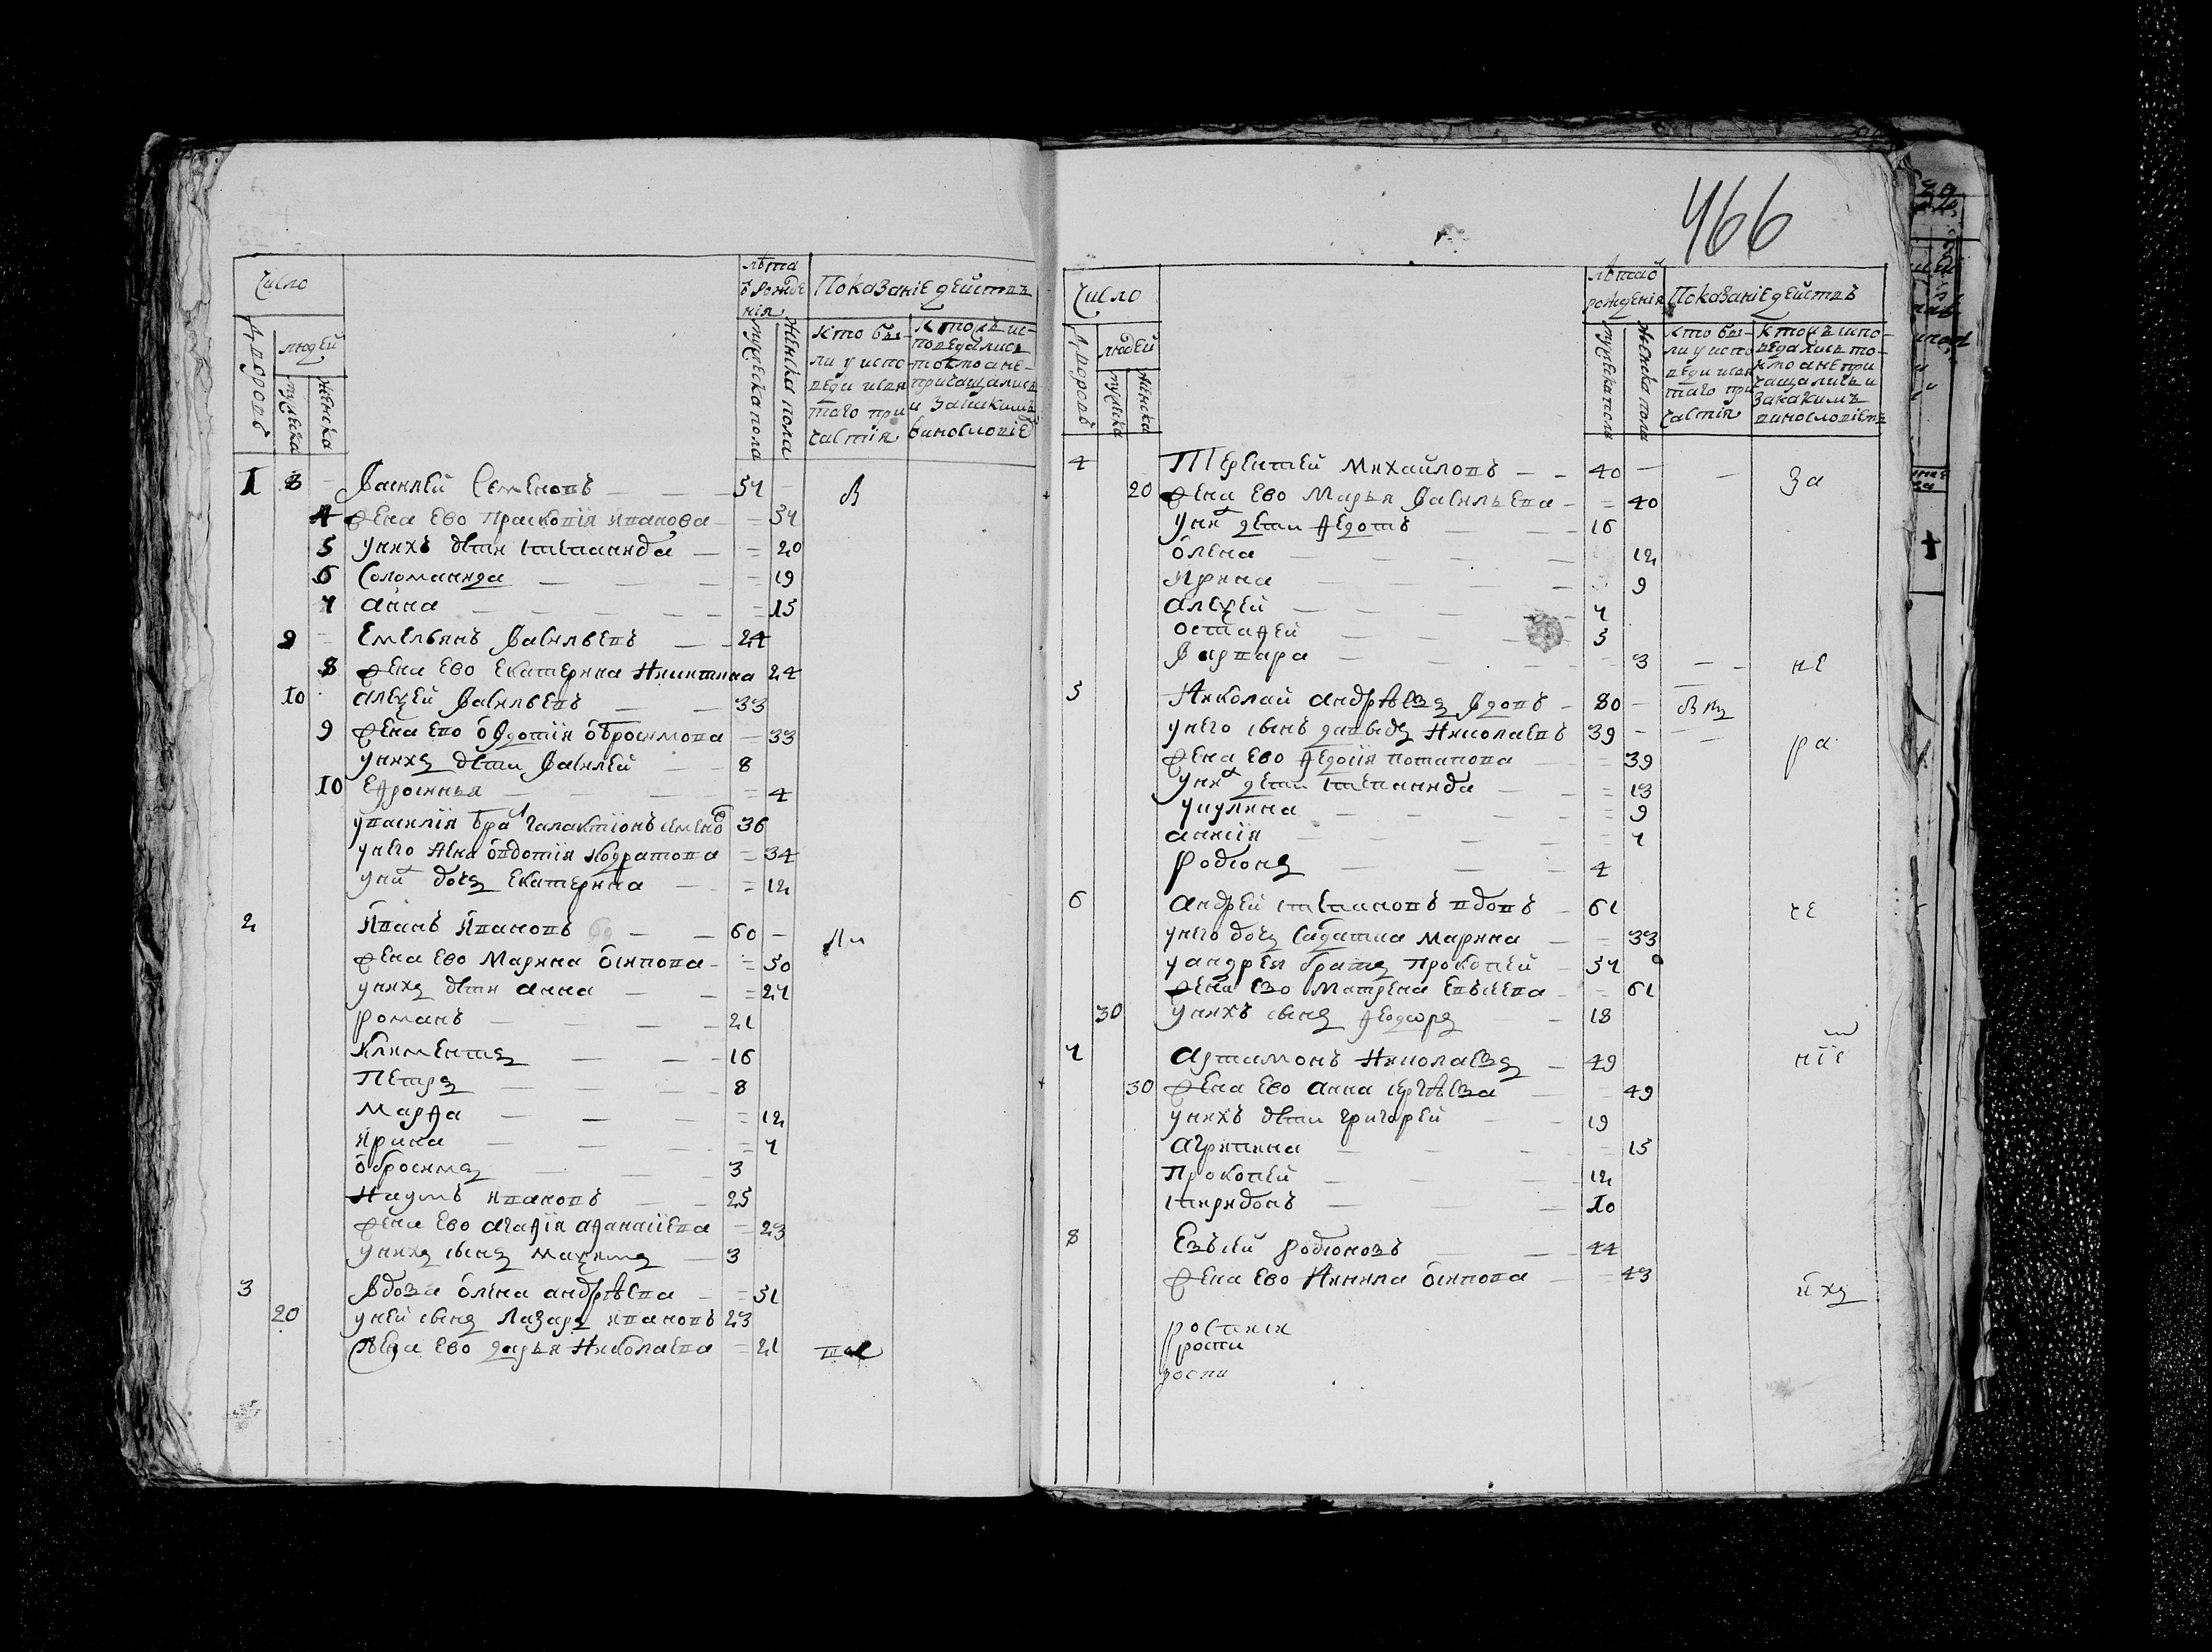 Число
лѣта
ѿ рожде
нія
Показаніе действъ
Дворовъ
людей
мужеска
женска
мужеска пола
женска пола
кто бы-
ли у испо
веди и свя
таго при
частия
кто исъ ис-
поведались
токмо а не
причащались
и за каким
винословіе
1 8 Василей Семеновъ 54 В
4 жена ево Праскопія Иванова 54
5 у нихъ дѣти Степанида 20
6 Соломанида 19
7 анна 15
9 Емельянъ Васильевъ 24
8 жена ево Екатерина Никитина 24
10 алеѯей Васильевъ 33
9 жена ево овдотія обросимова 33
у нихъ дѣти Василей 8
10 Еѳросинья 4
у василія бра Галактіонъ семено 36
у него жена овдотія кодратова 34
у ни дочь Екатерина 12
2 Иванъ Ивановъ 60 Ли
жена ево Марина осипова 50
у нихъ дѣти анна 24
романъ 21
Климентъ 16
Петръ 8
Марѳа 12
Ирина 7
обросимъ 3
Наумъ ивановъ 25
жена ево агаѳія аѳанасіева 23
у нихъ сынъ маѯимъ 3
3 Вдова олена андрѣева 51
20 у ней сынъ Лазаръ ивановъ 23
жена ево дарья Николаева 21
466
Число
лѣта ѿ
рожденія
Показаніе действъ
Дворовъ
людей
мужеска
женска
мужеска пола
женска пола
кто бы-
ли у испо
веди и свя
таго при
частія
кто исъ испо-
ведались то-
кмо а не при
чащались и
за каким
винословіемъ
4 Терентей Михайловъ 40 за
20 жена ево Марья Васильева 40
у них дети Ѳедотъ 16
олена 12
Ирина 9
алеѯей 7
остаѳей 5
Варвара 3 не
5 Николай андрѣевъ вдовъ 80
у него сынъ давыдъ Николаевъ 39 ра
жена ево Ѳедосія потапова 39
у них дети степанида 13
улулина 9
анисія 7
родіонъ 4
6 андрей степановъ вдовъ 61 че
у него дочь салдатка марина 33
у андрея братъ прокопей 54
жена ево матрена евьсеева 61
30 у нихъ сынъ Ѳеодоръ 18
7 артамонъ Николаевъ 49 ніе
30 жена ево анна сергѣева 49
у нихъ дѣти григорей 19
агрипина 15
Прокопей 12
спиридонъ 10
8 Евьсей родіоновъ 44
жена ево Ненила осипова 43
ихъ
роспи